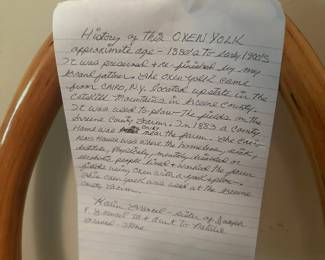 History of this OXEN YOLK
approximate age - 1880's to early 1900's
It was preserved & re-finished by my
Grandfather. The oxen yolk came
from CAIRO, N.Y. located upstate in the
Catskill Mountains in Greene County.
It was used to plow the fields on the
Greene County Farm. In 1883 a County
Home was near the farm. The
Home was where the homeless, sick,
destitute, physically, mentally disabled or
people lived & worked the farm
fields using oxen with a
This oxen yolk was used at the Greene
County Farm.
sister of Joseph
& aunt to Natalie